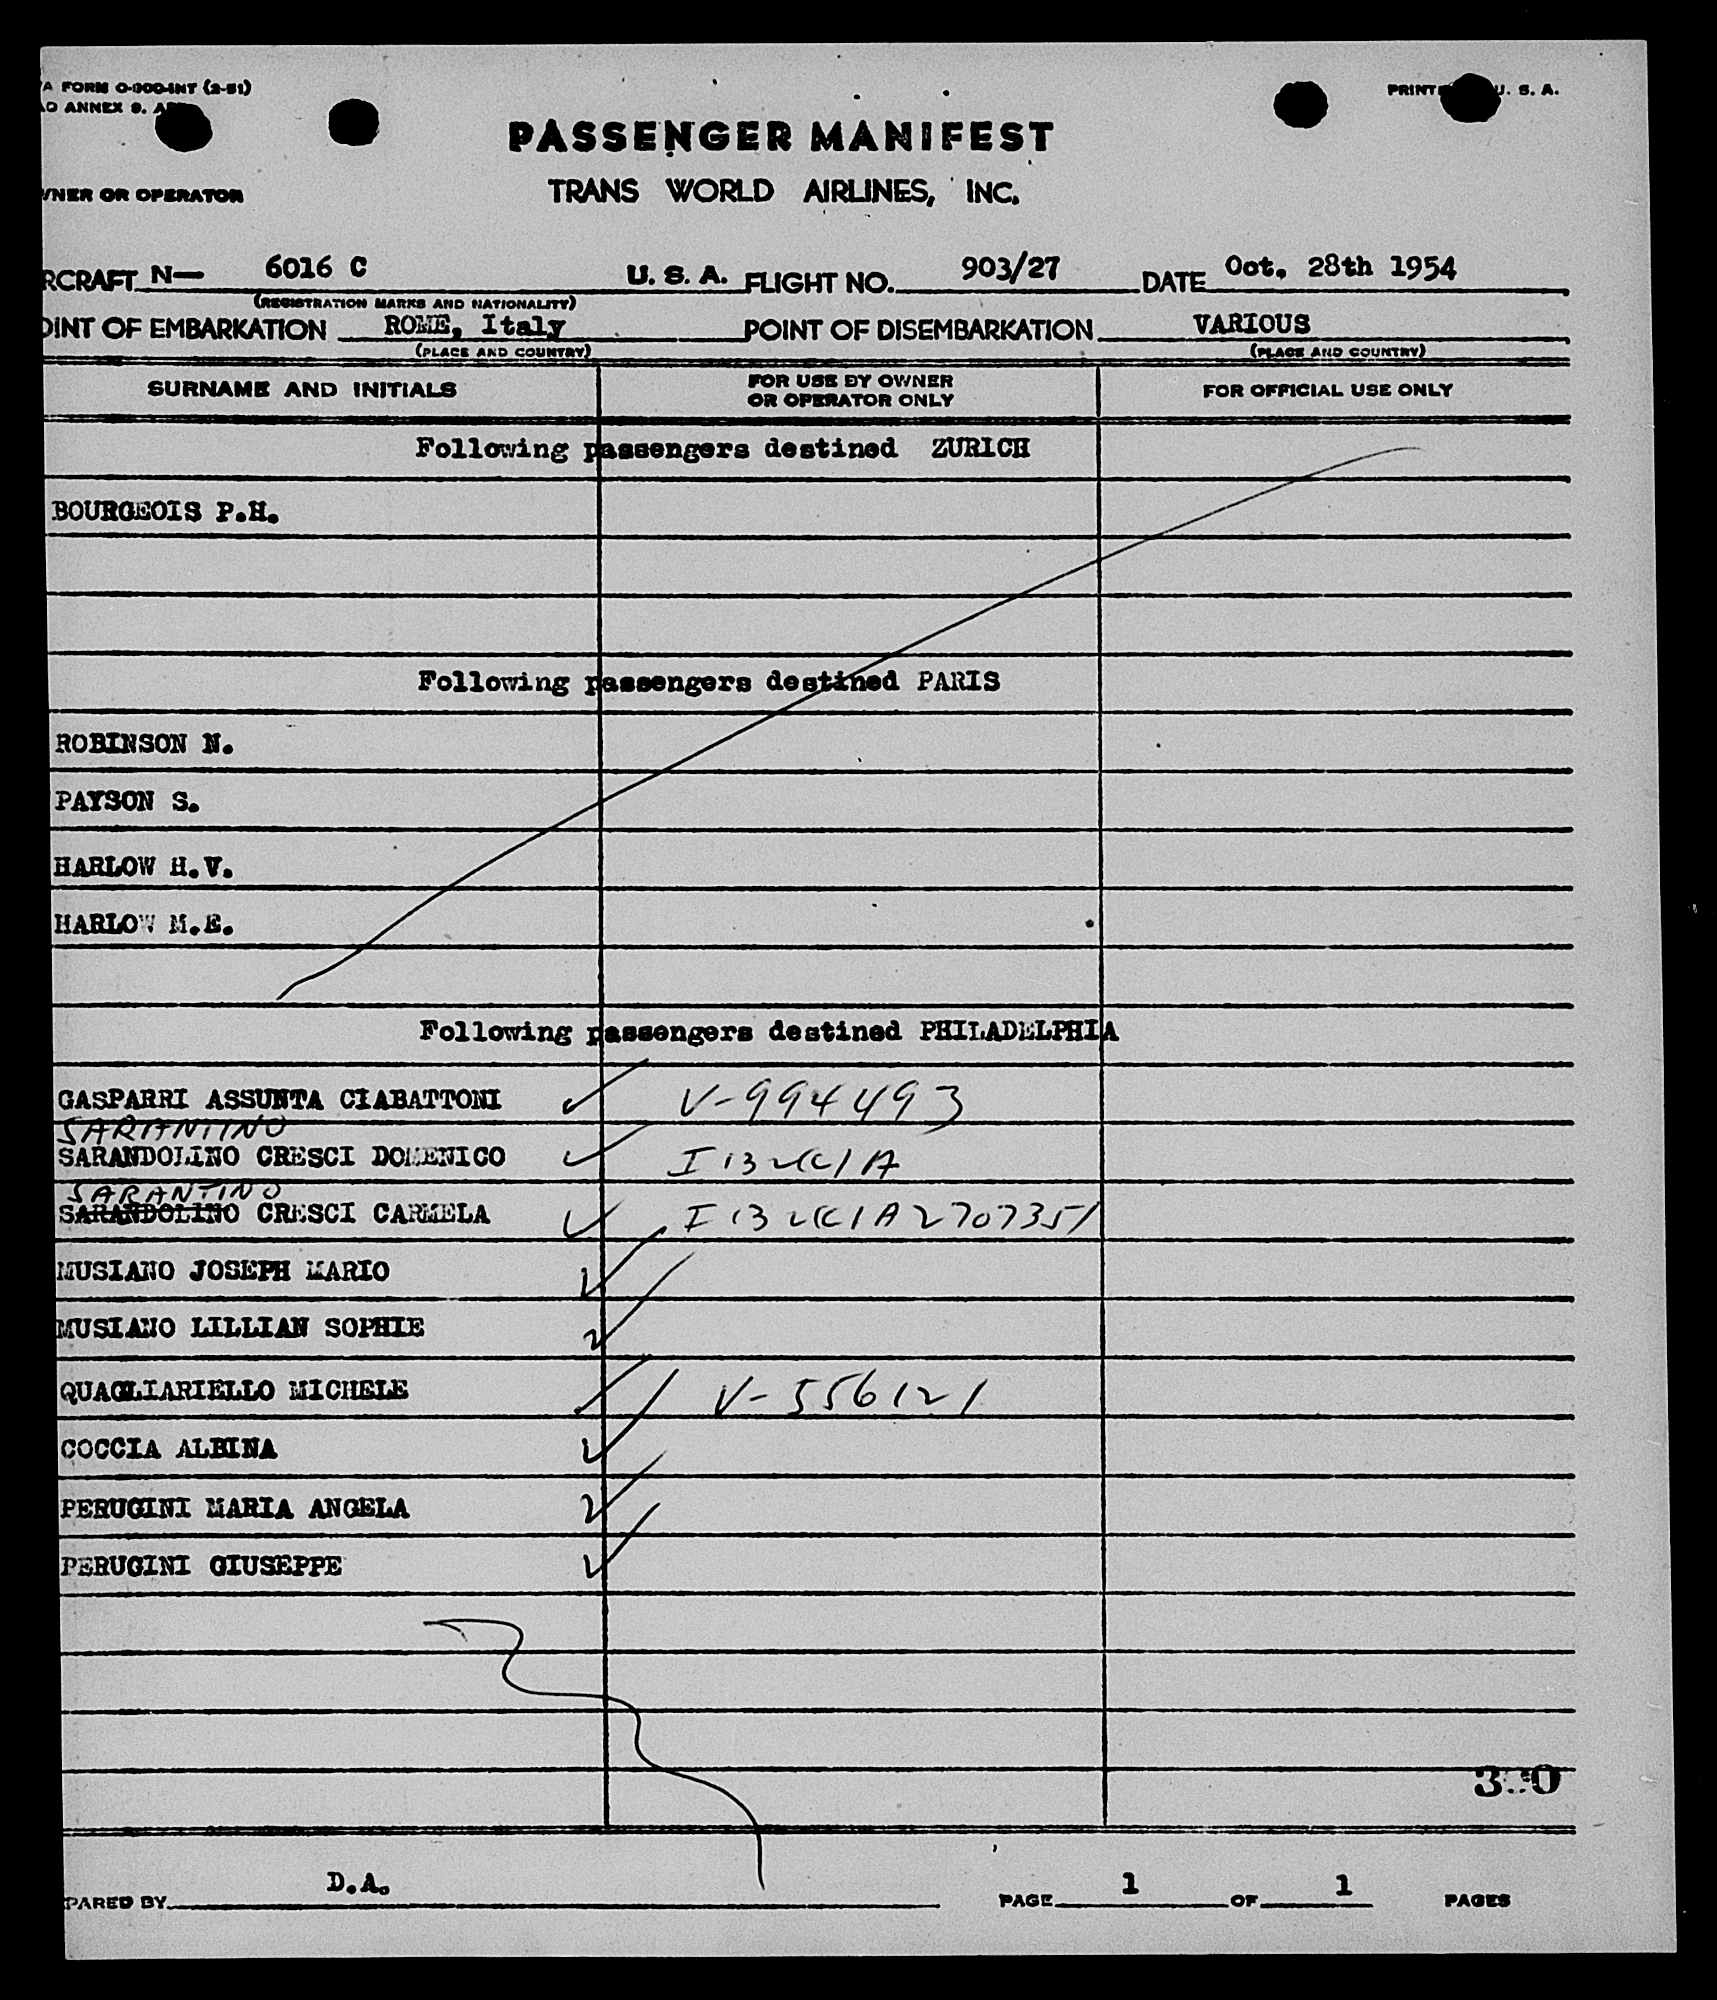 A FORM O-900-INT (2-51)
AO ANNEX 9.
PRINT U. S. A.
PASSENGER MANIFEST
WNER OR OPERATOR
TRANS WORLD AIRLINES, INC.
RCRAFT N— 6016 C U. S. A. FLIGHT NO. 903/27 DATE Oct. 28th 1954
(REGISTRATION MARKS AND NATIONALITY)
OINT OF EMBARKATION ROME, Italy POINT OF DISEMBARKATION VARIOUS
(PLACE AND COUNTRY) (PLACE AND COUNTRY)
SURNAME AND INITIALS FOR USE BY OWNER OR OPERATOR ONLY FOR OFFICIAL USE ONLY
Following passengers destined ZURICH
BOURGEOIS P.H.
Following passengers destined PARIS
ROBINSON N.
PAYSON S.
HARLOW H.V.
HARLOW M.E.
Following passengers destined PHILADELPHIA
GASPARRI ASSUNTA CIABATTONI V-994493
SARANTINO
SARANDOLINO CRESCI DOMENICO I
SARANTINO
SARANDOLINO CRESCI CARMELA I
MUSIANO JOSEPH MARIO
MUSIANO LILLIAN SOPHIE
QUAGLIARIELLO MICHELE V-556121
COCCIA ALBINA
PERUGINI MARIA ANGELA
PERUGINI GIUSEPPE
PARED BY D.A. PAGE 1 OF 1 PAGES